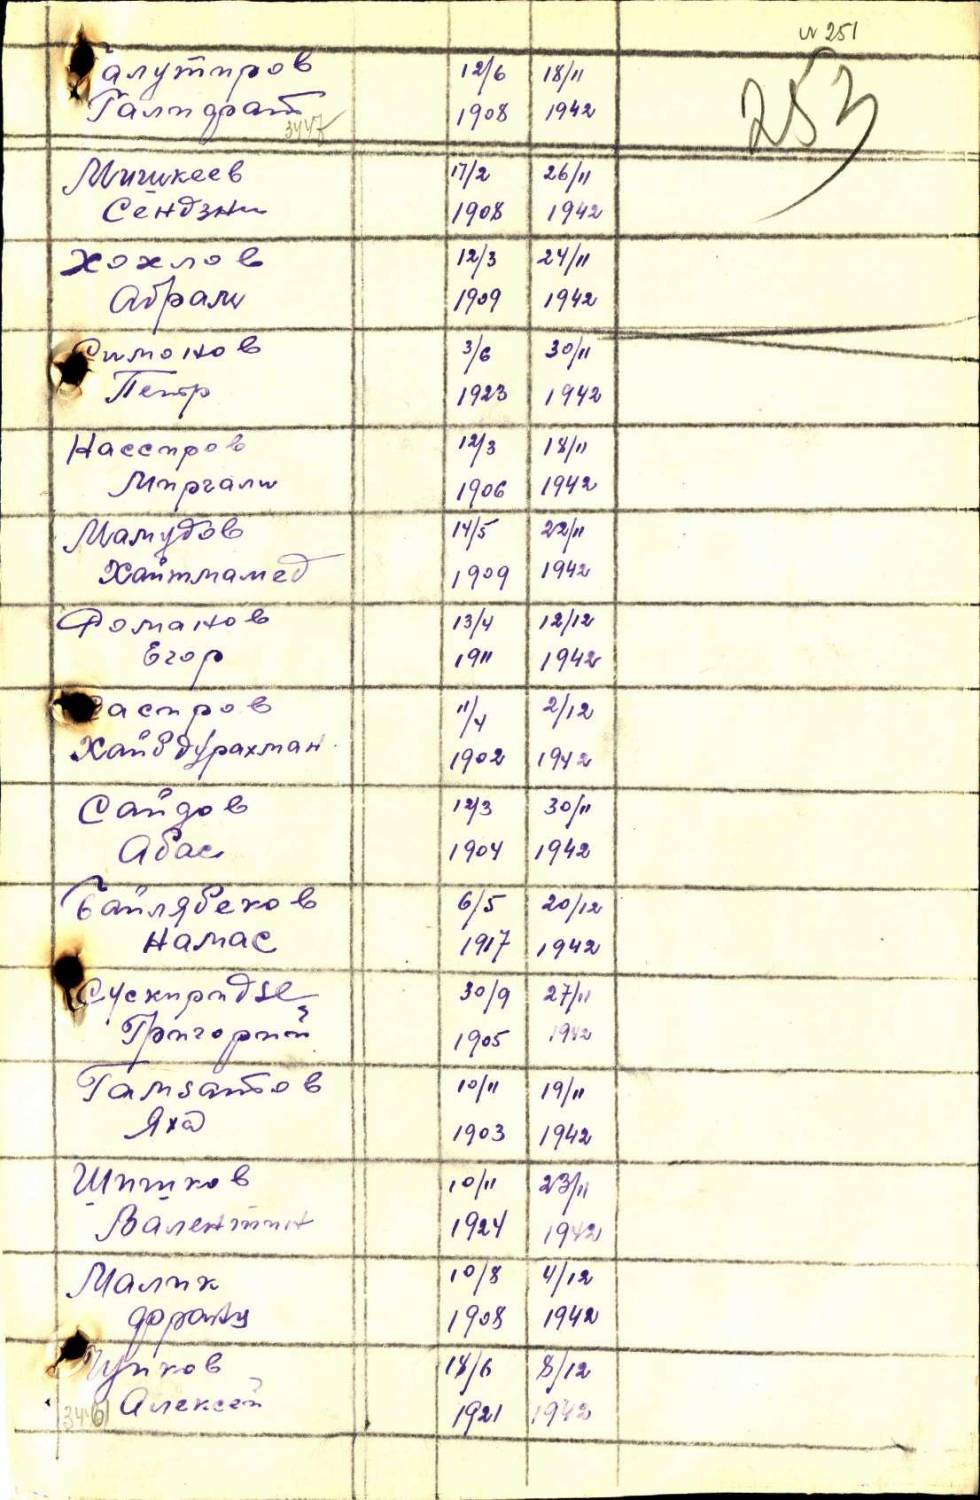 № 251
253
алутдинов 12/6 18/11
Галидрат 1908 1942
3447
Мишкеев 17/2 26/11
Сендзни 1908 1942
Хохлов 12/3 24/11
Абрам 1909 1942
Симонов 3/6 30/11
Петр 1923 1942
Насспров 12/3 18/11
Миргали 1906 1942
Мамудов 14/5 22/11
Хайтмамед 1909 1942
Романов 13/4 12/12
Егор 1911 1942
аспров 11/4 2/12
Хайбдурахман 1902 1942
Сайдов 12/3 30/11
Абас 1904 1942
Байлябеков 6/5 20/12
Намас 1917 1942
Сускиридзе 30/9 27/11
Григорий 1905 1942
Гамзатов 10/11 19/11
Яхд 1903 1942
Шишков 10/11 23/11
Валентин 1924 1942
Малик 10/8 4/12
франц 1908 1942
Чупков 18/6 8/12
Алексей 1921 1942
3461